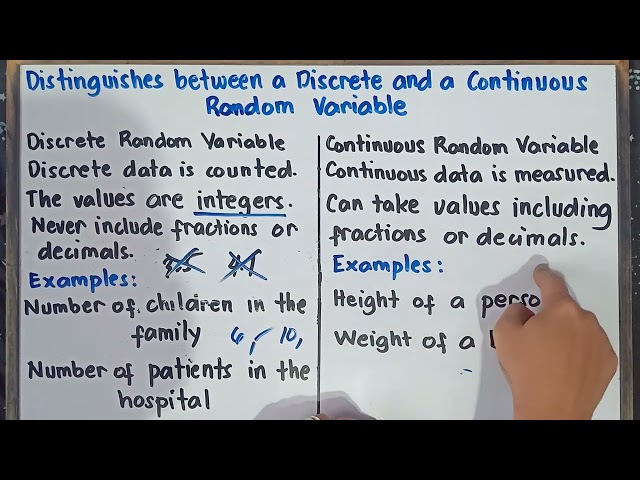 Distinguishes between a Discrete and a Continuous
Random Variable
Discrete Random Variable
Discrete data is counted.
The values are integers.
Never include fractions or
decimals.
Examples:
Number of children in the
family 6, 10,
Number of patients in the
hospital
Continuous Random Variable
Continuous data is measured.
Can take values including
fractions or decimals.
Examples:
Height of a perso
Weight of a